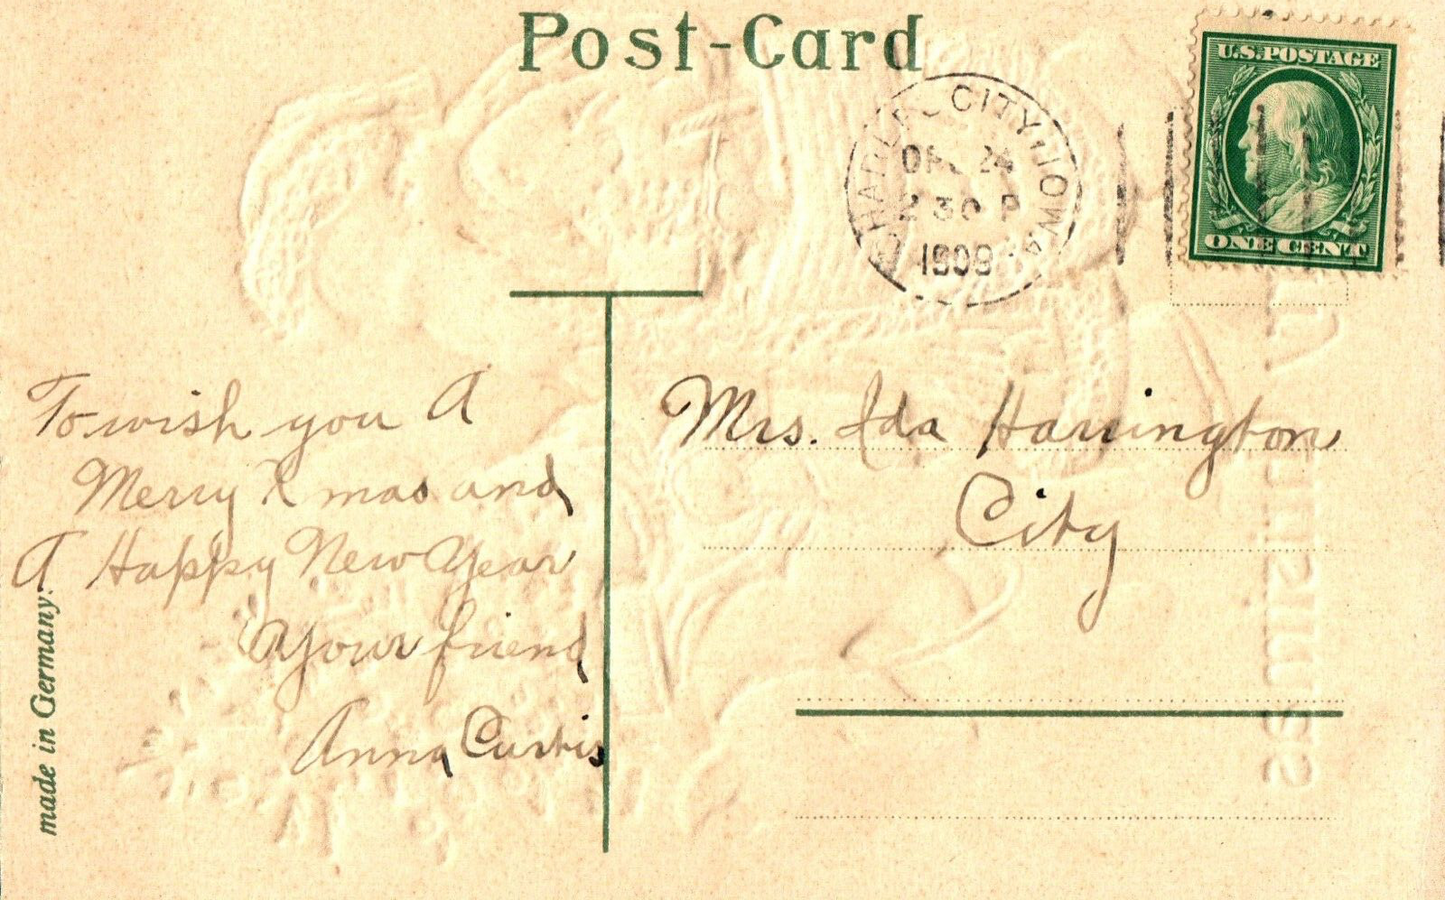 Post-Card
CITY, IOWA
24
30 P
1909
U.S. POSTAGE
ONE CENT
To wish you A
Merry Xmas and
A Happy New Year
Your friend
Anna Curtis
Mrs. Ida Harrington
City
made in Germany.